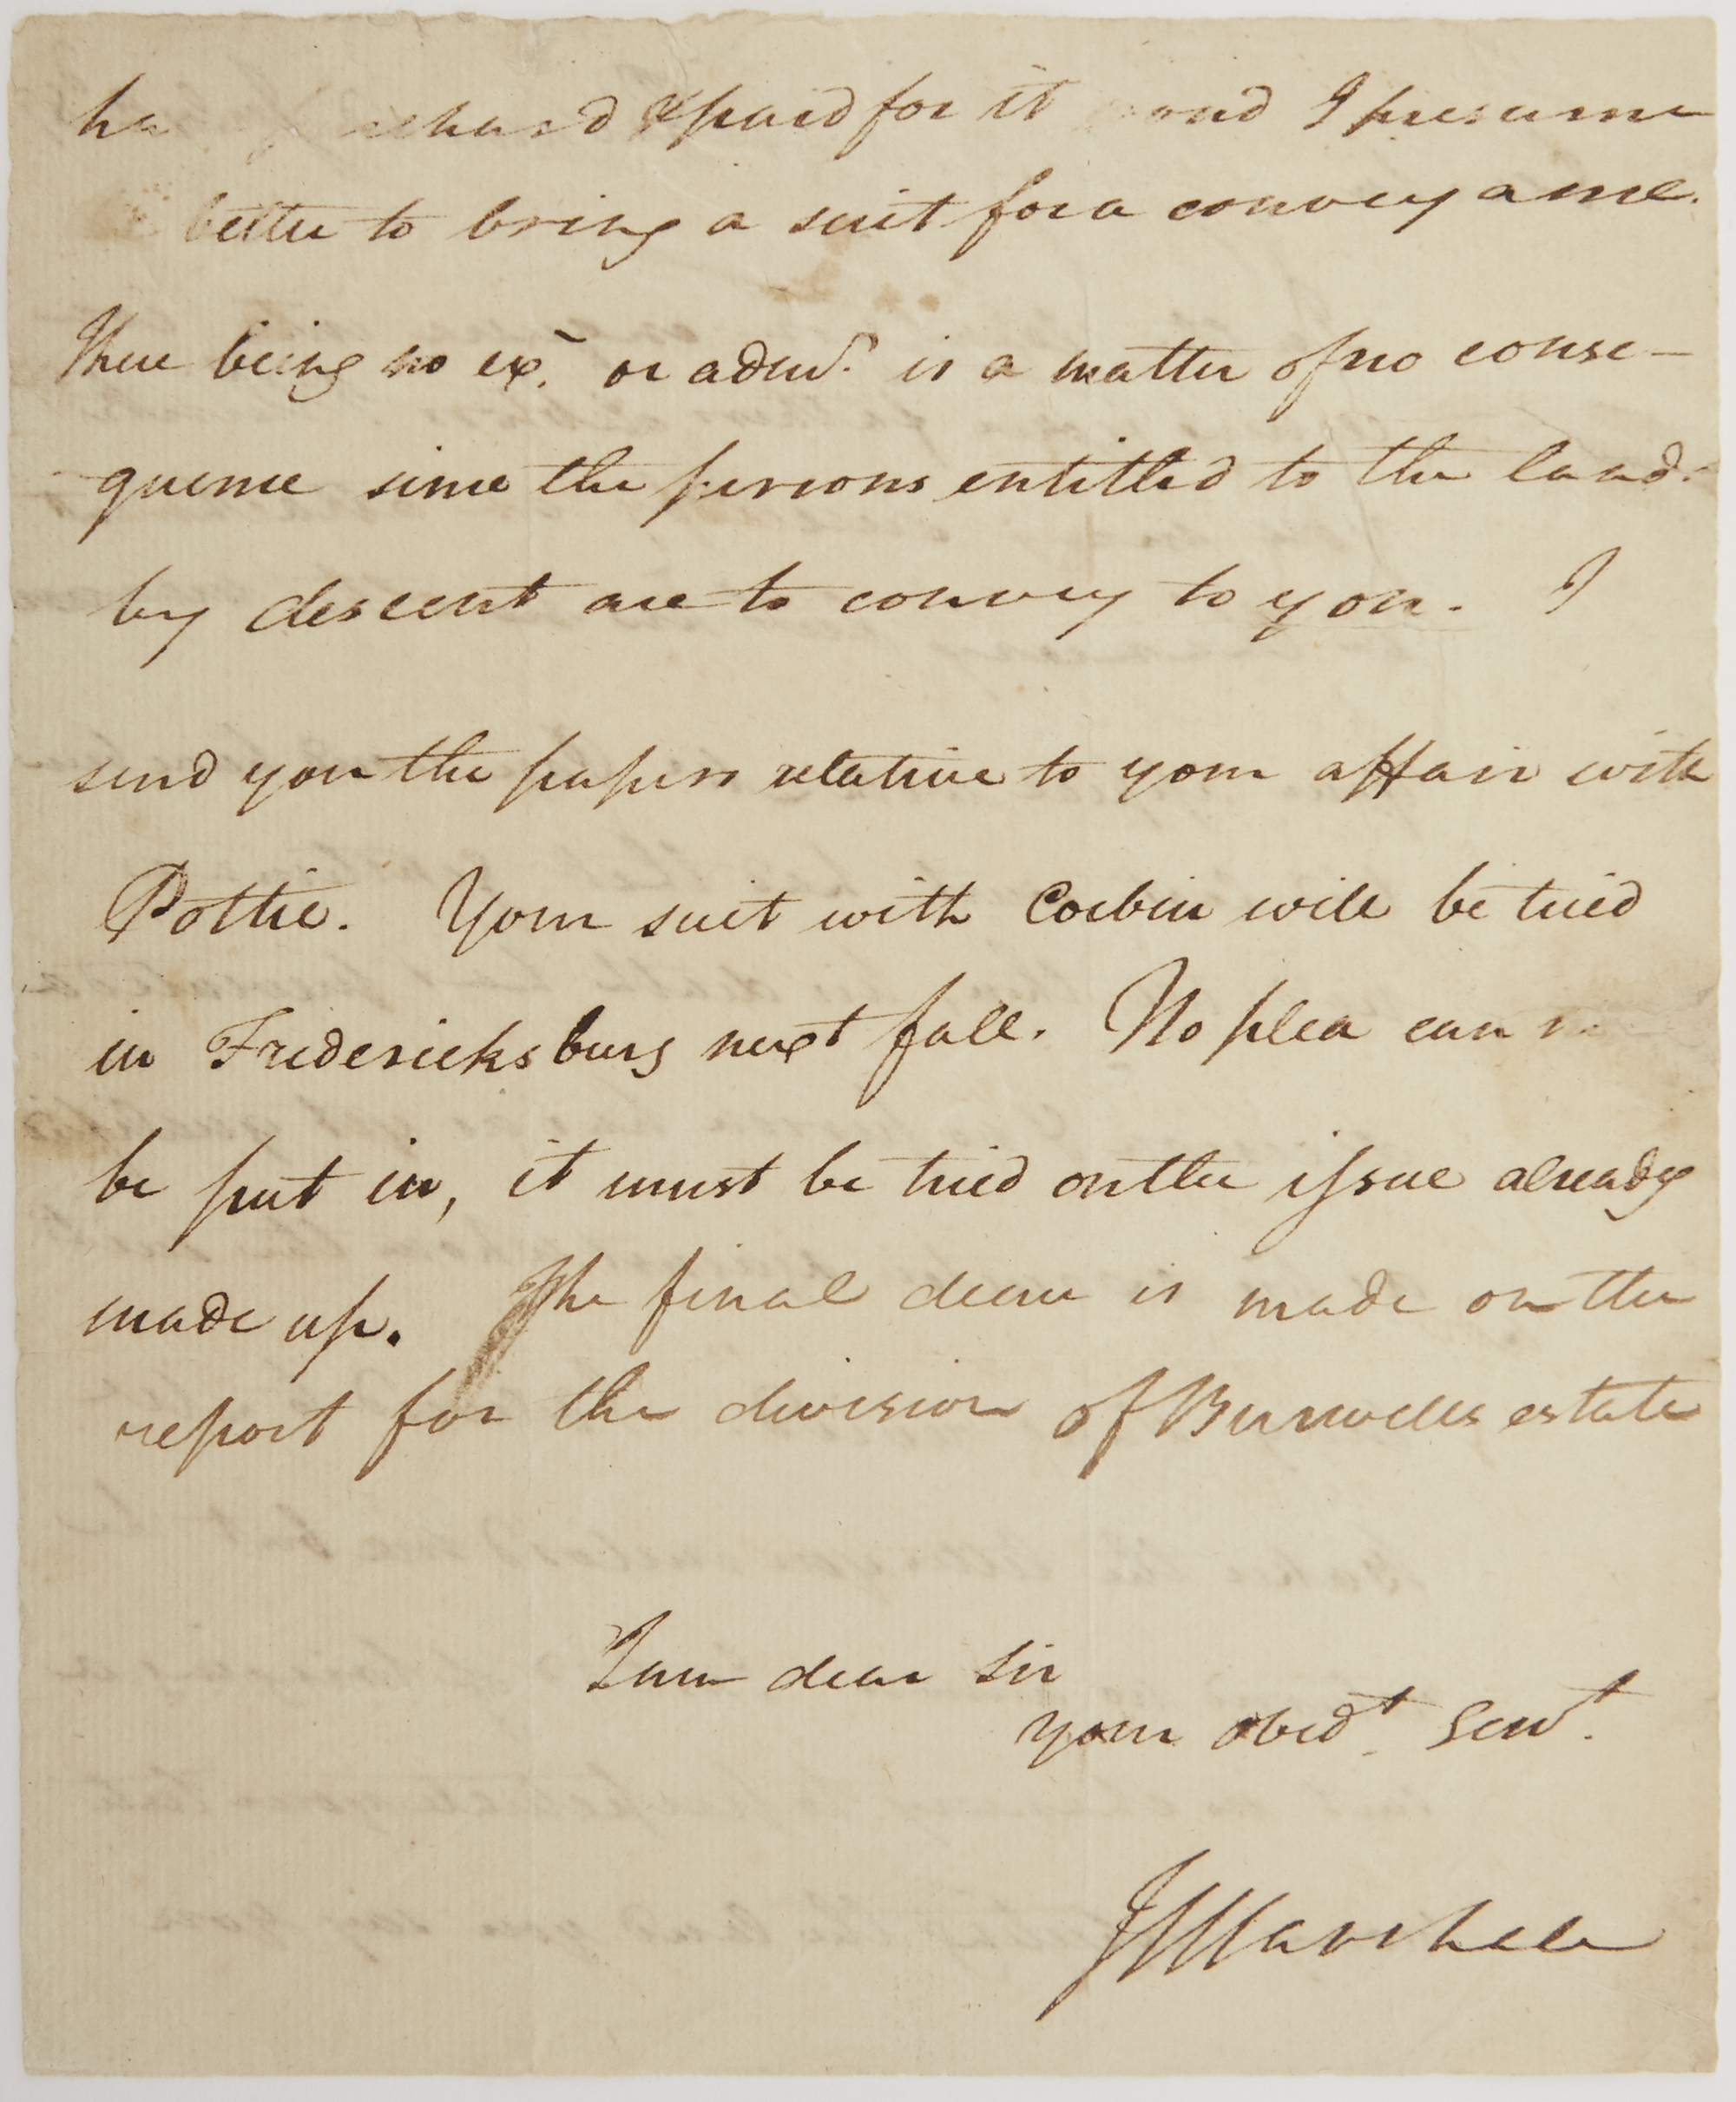 & paid for it and I presume
better to bring a suit for a conveyance.
There being no exr. or admr. is a matter of no conse-
quence since the persons entitled to the land
by descent are to convey to you. I
send you the papers relative to your affair with
Pottie. Your suit with Corbin will be tried
in Fredericksburg next fall. No plea can
be put in, it must be tried on the issue already
made up. The final decree is made on the
report for the division of Burwells estate
I am dear Sir
your obedt. Servt.
J Marshall